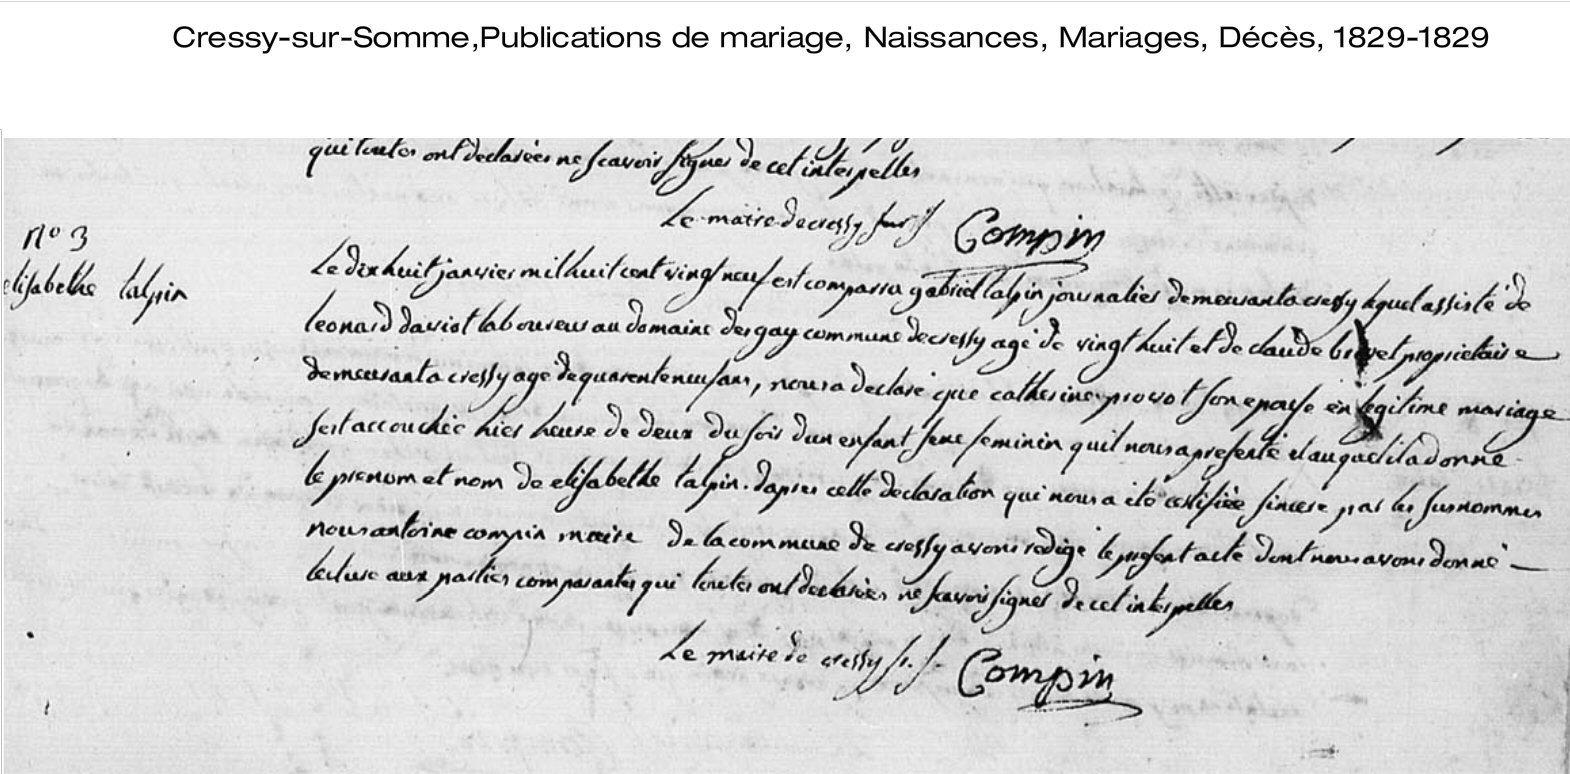 Cressy-sur-Somme,Publications de mariage, Naissances, Mariages, Décès, 1829-1829
qui toutes ont declarées ne scavoir signer de cet interpelles
Le maire de cressy sur s
Compin
n° 3
elisabethe talpin
Le dix huit janvier mil huit cent vingt neuf est comparru gabriel talpin journalier demeurant a cressy lequel assisté de
leonard daviot laboureur au domaine des gay commune de cressy agé de vingt huit et de claude brivet proprietaire
demeurant a cressy age de quarente neuf ans, nous a declaré que catherine provot son epouse en legitime mariage
sest accouchée hier heure de deux du soir dun enfant sexe feminin quil nous a presenté et auquel il a donné
le prenom et nom de elisabethe talpin. dapres cette declaration qui nous a été certifiée sincere par les susnommés
nous antoine compin maire de la commune de cressy avons redigé le present acte dont nous avons donné
lecture aux parties comparantes qui toutes ont declarées ne scavoir signer de cet interpelles
Le maire de cressy s. s.
Compin